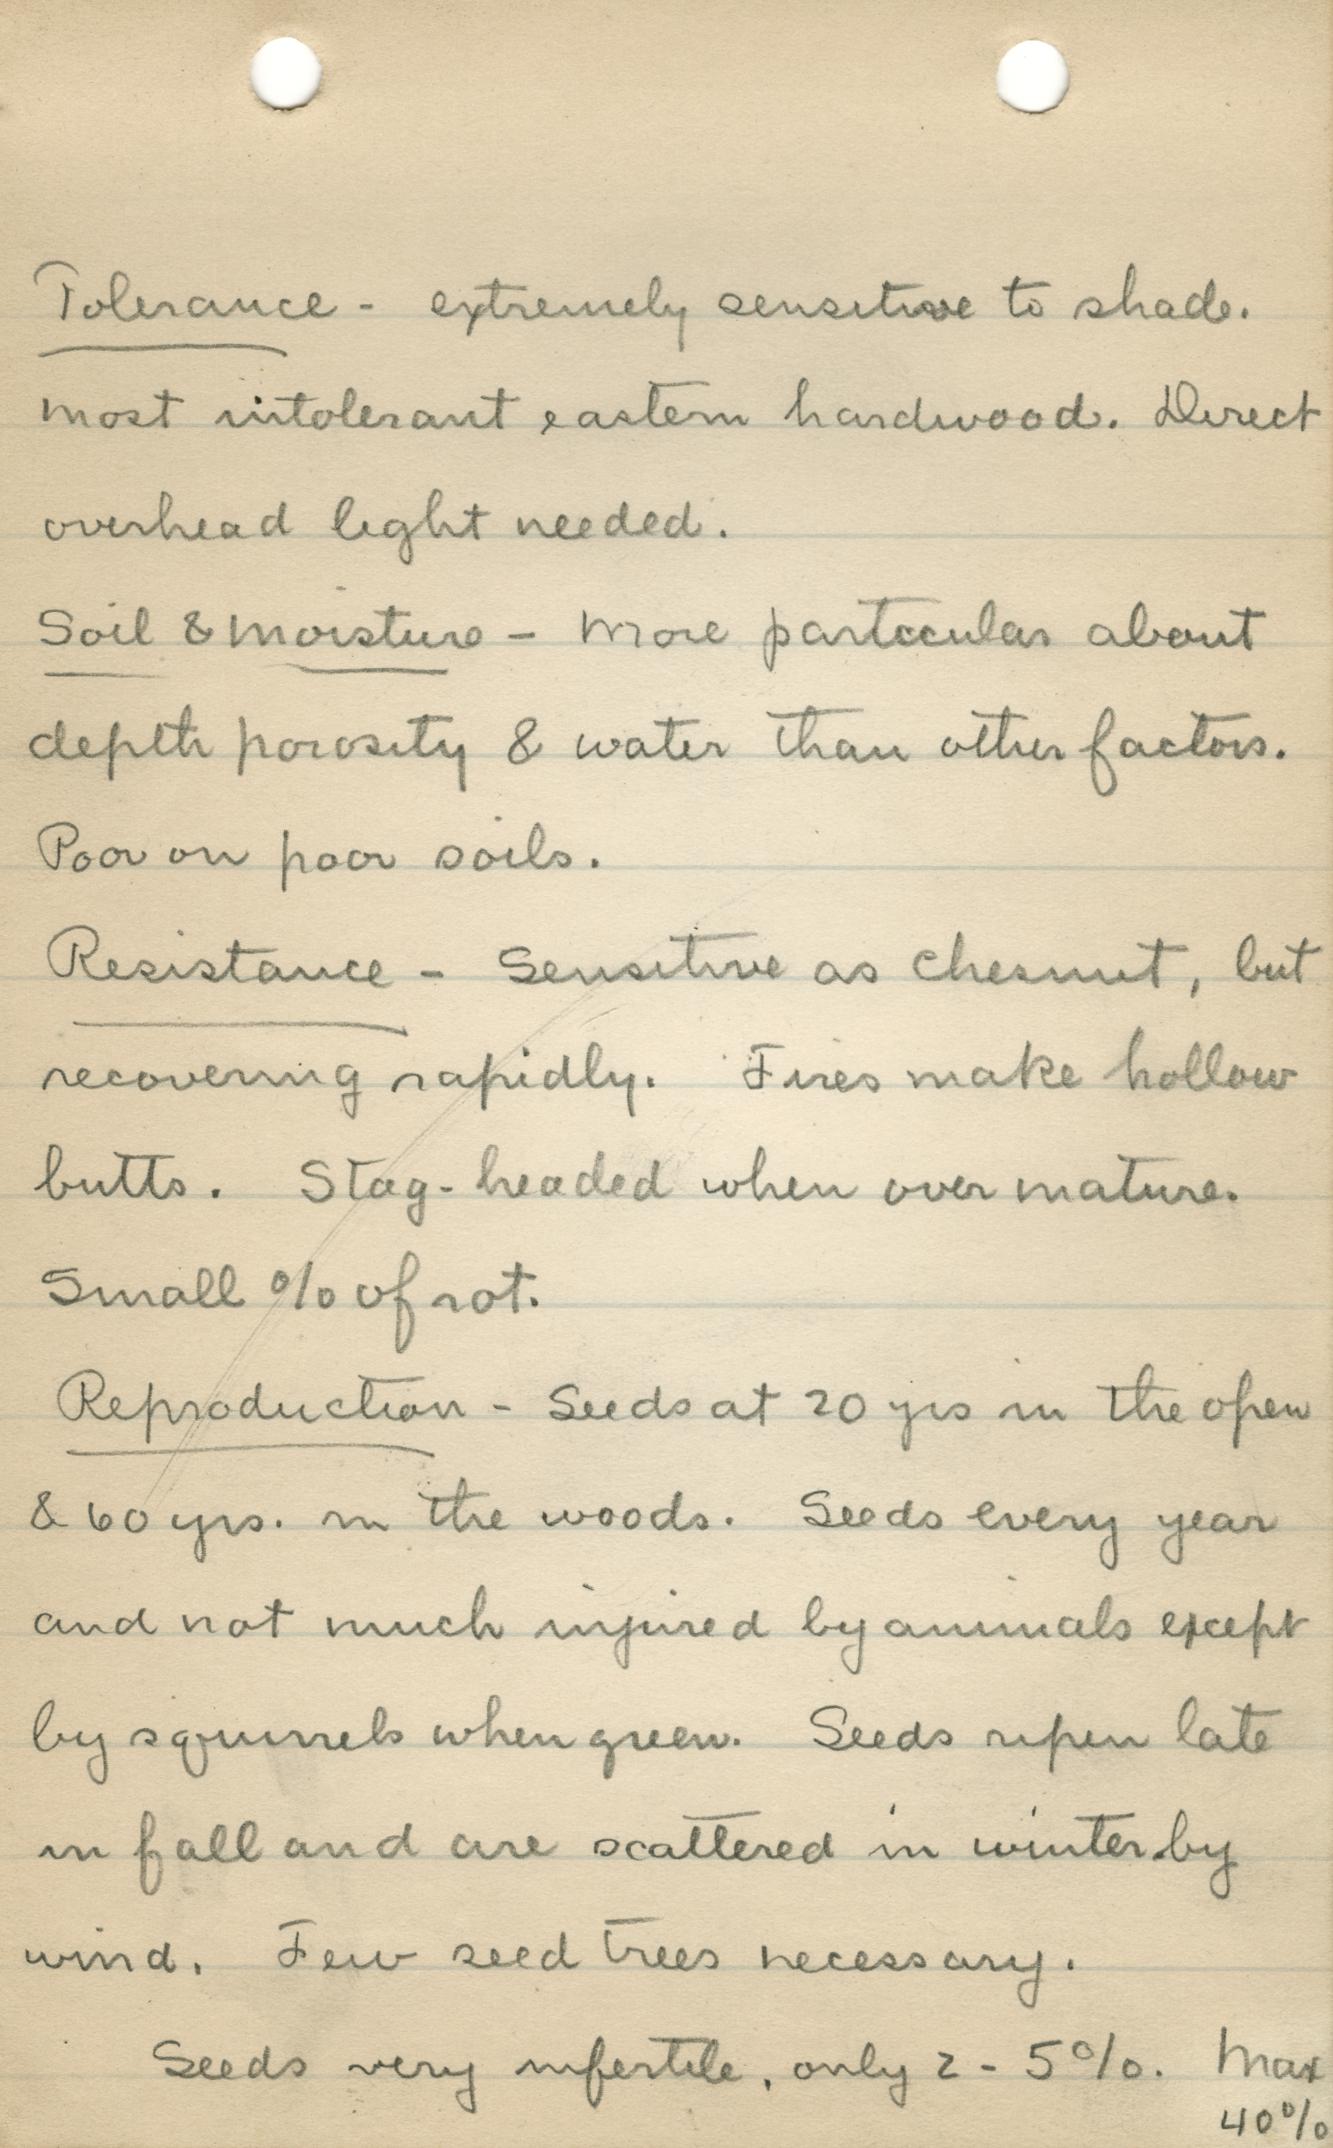 Tolerance - extremely sensitive to shade.
most intolerant eastern hardwood. Direct
overhead light needed.
Soil & moisture - More particular about
depth porosity & water than other factors.
Poor on poor soils.
Resistance - Sensitive as chesnut, but
recovering rapidly. Fires make hollow
butts. Stag-headed when over mature.
Small % of rot.
Reproduction - Seeds at 20 yrs in the open
& 60 yrs. in the woods. Seeds every year
and not much injured by animals except
by squirrels when green. Seeds ripen late
in fall and are scattered in winter by
wind. Few seed trees necessary.
Seeds very infertile, only 2 - 5%. Max
40%